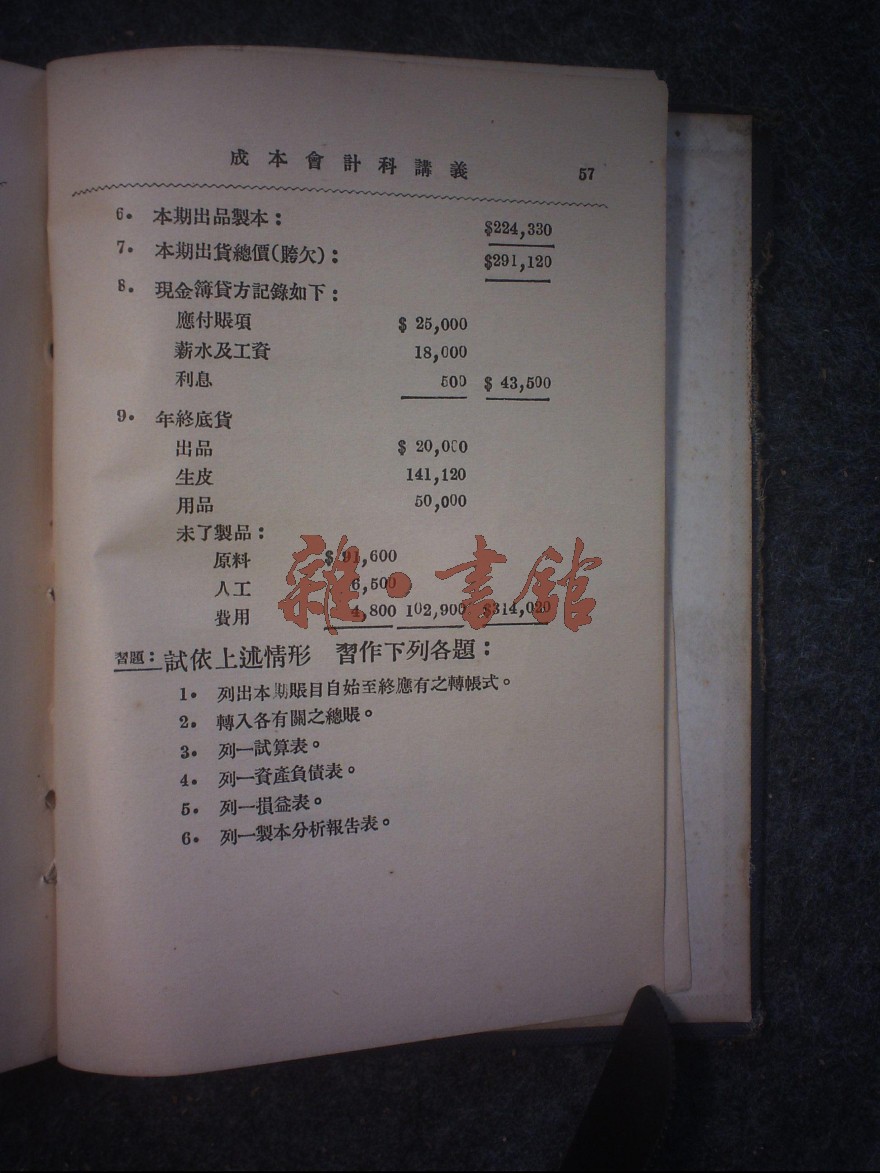 成本會計科講義 57
6. 本期出品製本： $224,330
7. 本期出貨總價(賒欠)： $291,120
8. 現金簿貸方記錄如下：
應付賬項 $ 25,000
薪水及工資 18,000
利息 500 $ 43,500
9. 年終底貨
出品 $ 20,000
生皮 141,120
用品 50,000
未了製品：
原料 $ 91,600
人工 6,500
費用 4,800 102,900 $314,020
習題：試依上述情形 習作下列各題：
1. 列出本期賬目自始至終應有之轉帳式。
2. 轉入各有關之總賬。
3. 列一試算表。
4. 列一資產負債表。
5. 列一損益表。
6. 列一製本分析報告表。
雜·書館